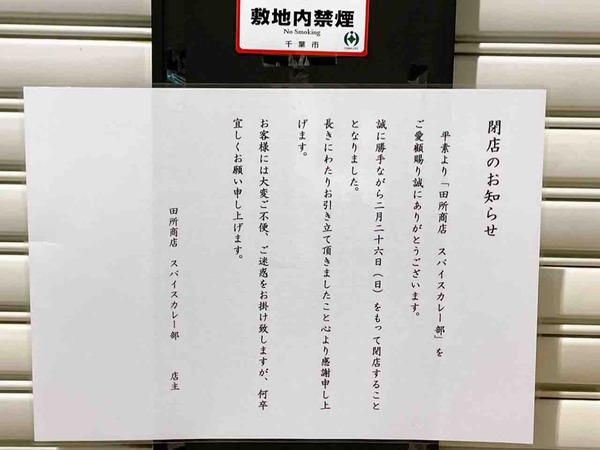 敷地内禁煙
No Smoking
千葉市
閉店のお知らせ
平素より「田所商店　スパイスカレー部」を
ご愛顧賜り誠にありがとうございます。
誠に勝手ながら二月二十六日（日）をもって閉店すること
となりました。
長きにわたりお引き立て頂きましたこと心より感謝申し上
げます。
お客様には大変ご不便、ご迷惑をお掛け致しますが、何卒
宜しくお願い申し上げます。
田所商店　スパイスカレー部　　店主